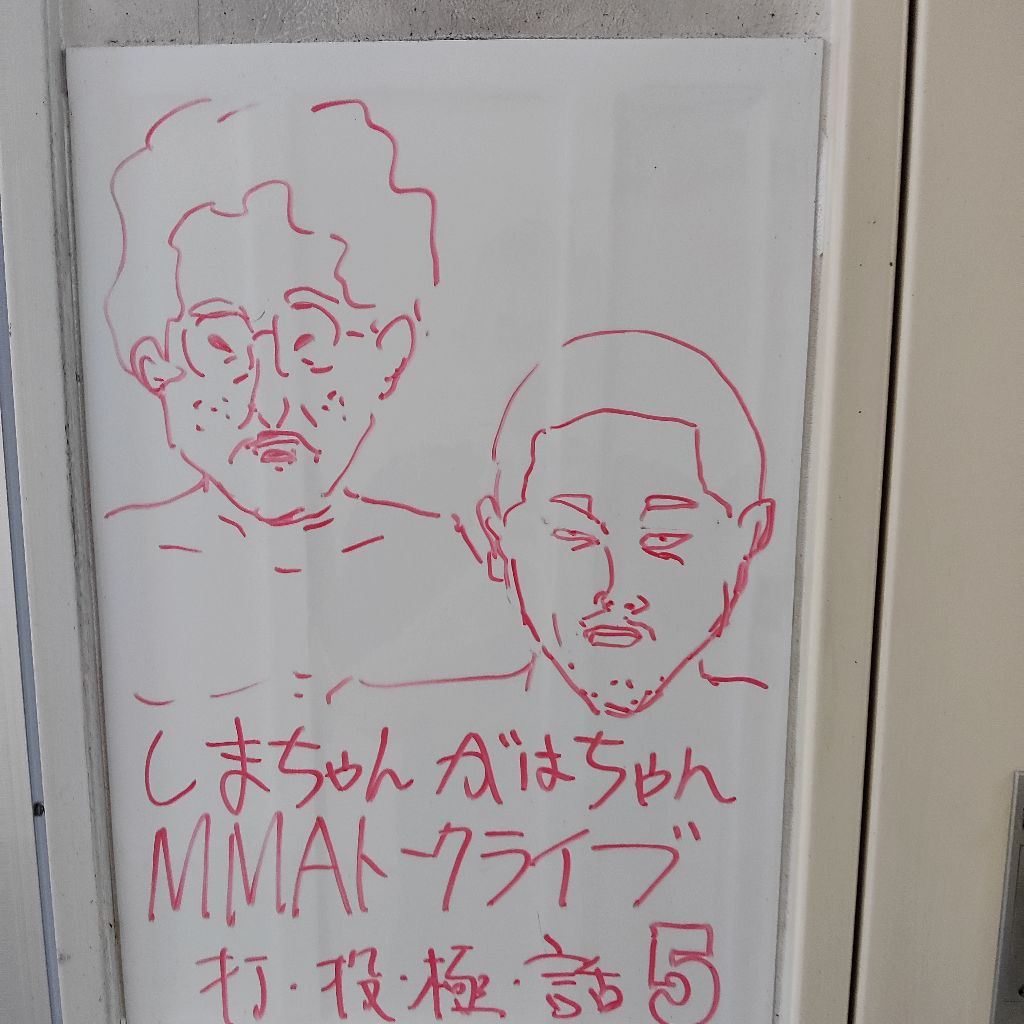 しまちゃん がはちゃん
MMAトークライブ
打・投・極・話 5